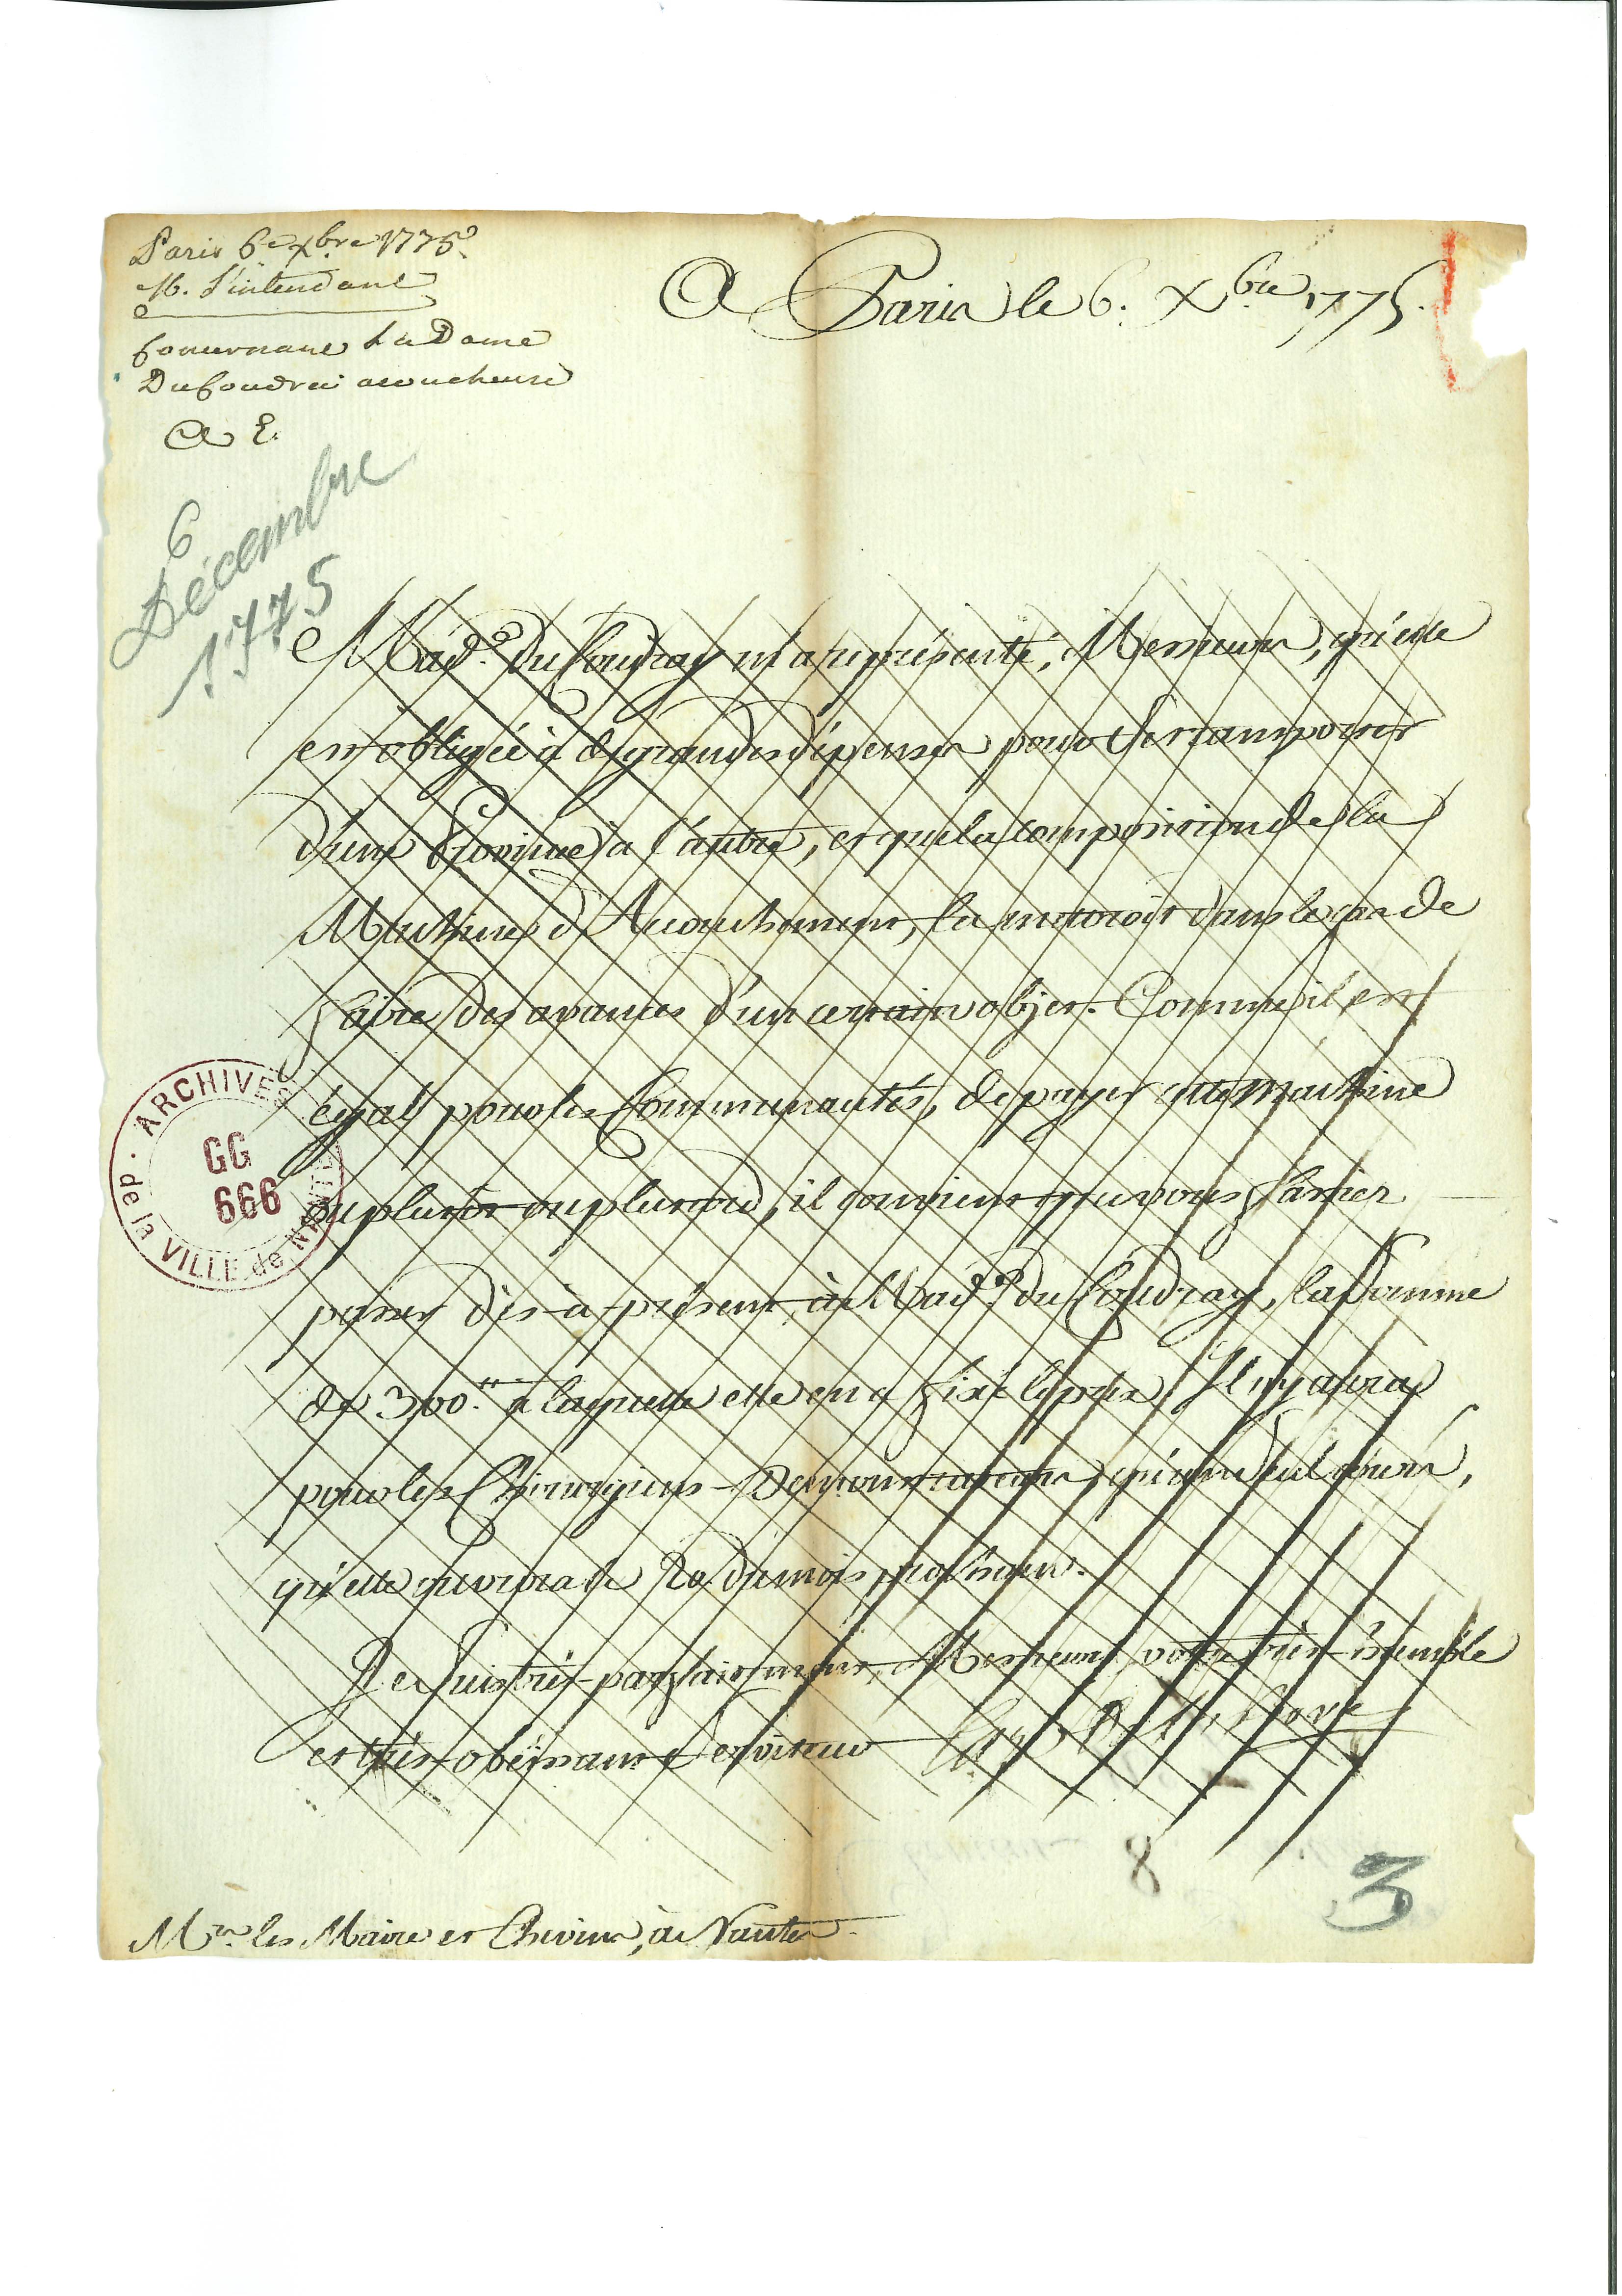 Paris 6e xbre 1775
M. l'intendant
Concernant La Dame
DuCoudrai acoucheuse
A E.
A Paris le 6. Xbre 1775.
6
Décembre
1775
Made. Du Coudray m'a représenté, Messieurs, qu'elle
est obligée à de grandes dépenses pour se transporter
d'une Province à l'autre, et que la composition de la
Machine d'Accouchement, la mettoit dans le cas de
faire des avances d'un certain objet. Comme il est
égal pour les Communautés, de payer cette Machine
ou plutôt ou plus tard, il convient que vous fassiez
passer dès-à-présent, à Made. Du Coudray, la Somme
de 300.tt à laquelle elle en a fixé le prix. Il n'y aura
pour les Chirurgiens-Démonstrateurs, qu'un seul cours,
qu'elle ouvrira le 20. du mois prochain.
Je suis très-parfaitement, Messieurs, votre très-humble
et très-obéissant Serviteur
Mrs. les Maire et Echevins, à Nantes.
ARCHIVES de la VILLE de NANTES
GG
666
8
3